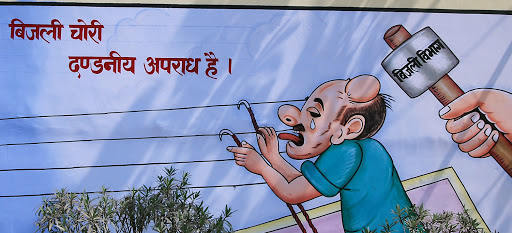 बिजली चोरी
दण्डनीय अपराध है ।
बिजली विभाग